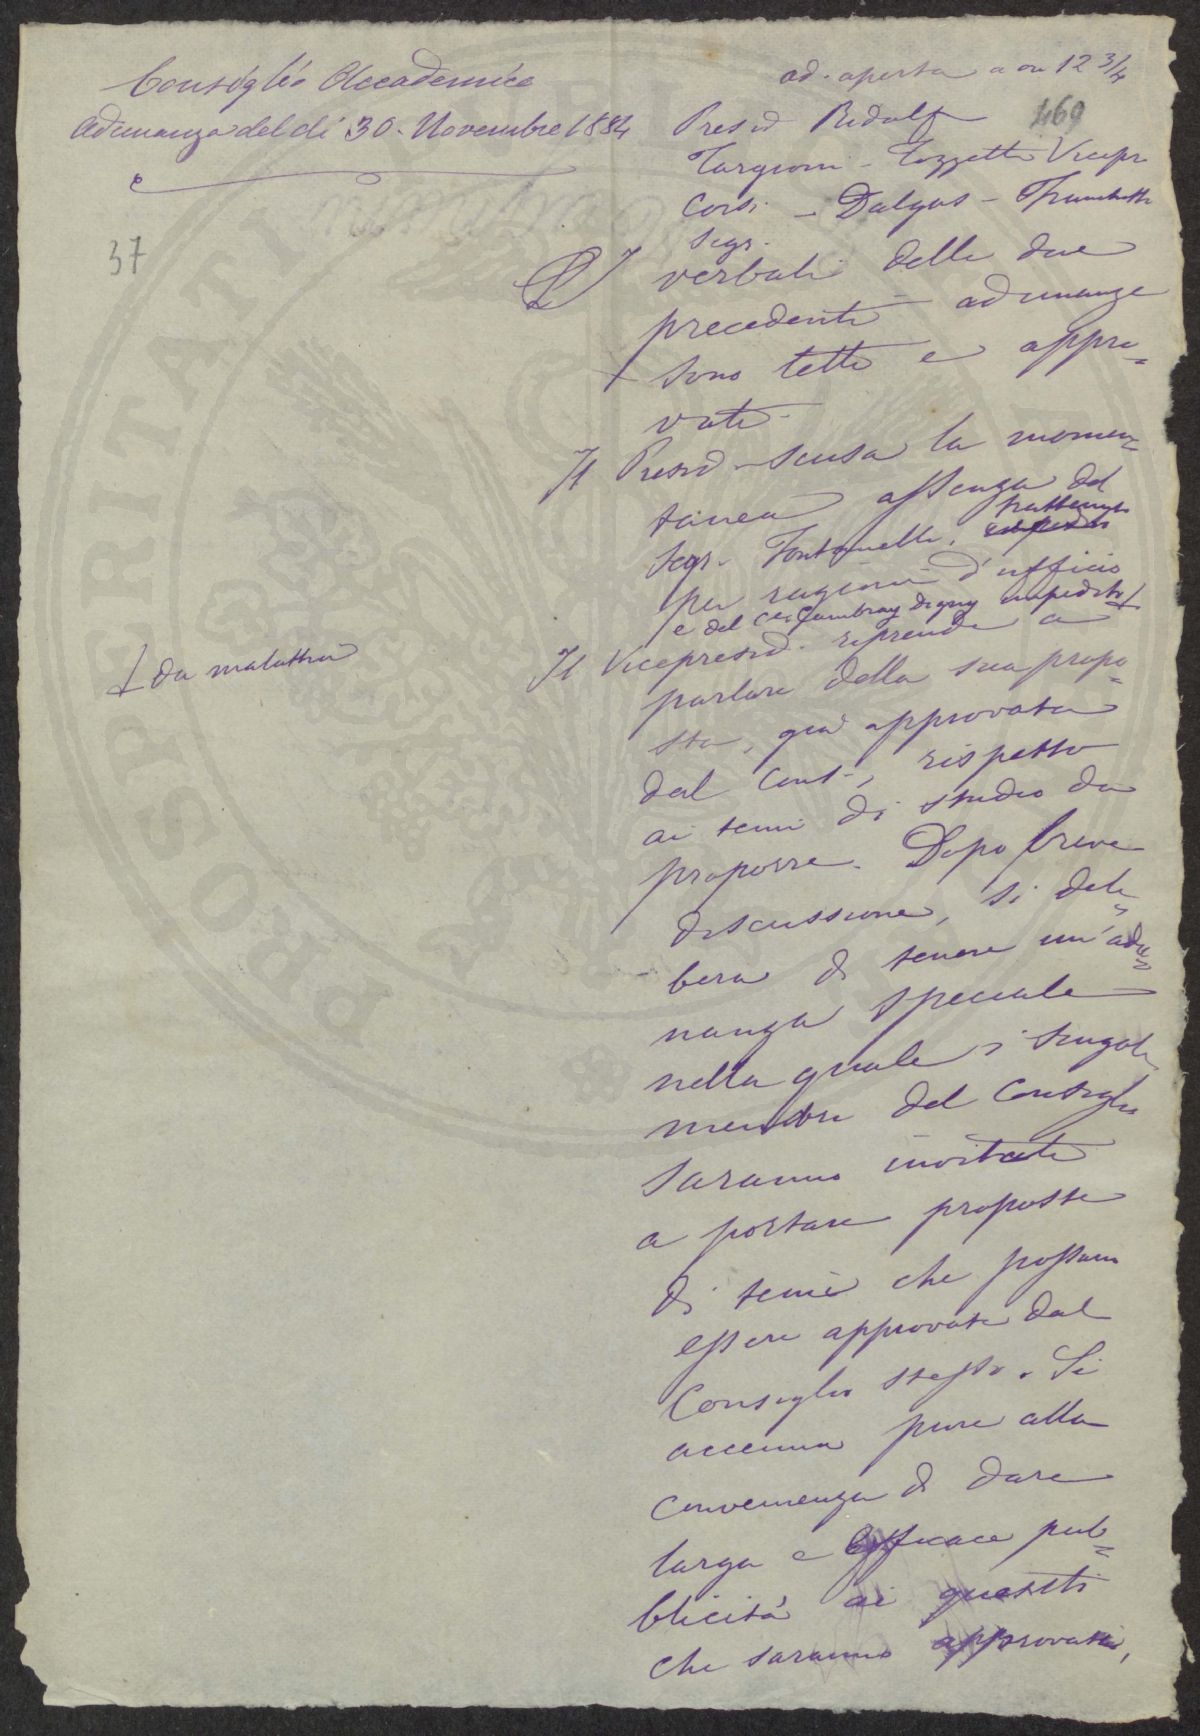 Consiglio Accademico
Adunanza del dì 30. Novembre 1884
37
ad. aperta a ore 12 3/4
469
Presid Ridolfi
Targioni - Tozzetti Vicepr
Corsi - Dalgas - Franchetti
Segr.
I verbali delle due
precedenti adunanze
sono letti e appro=
vati.
Il Presid. scusa la momen=
tanea assenza del
Segr. Fontanelli, trattenuto
per ragioni d'ufficio
e del Cte Cambray Digny impedito
da malattia
Il Vicepresid. riprende a
parlare della sua propo=
sta, già approvata
dal Cons., rispetto
ai temi di studio da
proporre. Dopo breve
discussione, si deli=
bera di tenere un'adu=
nanza speciale
nella quale i singoli
membri del Consiglio
saranno invitati
a portare proposte
di temi che possano
essere approvati dal
Consiglio stesso. Si
accenna pure alla
convenienza di dare
larga e efficace pub=
blicità ai quesiti
che saranno approvati,
PROSPERITATI